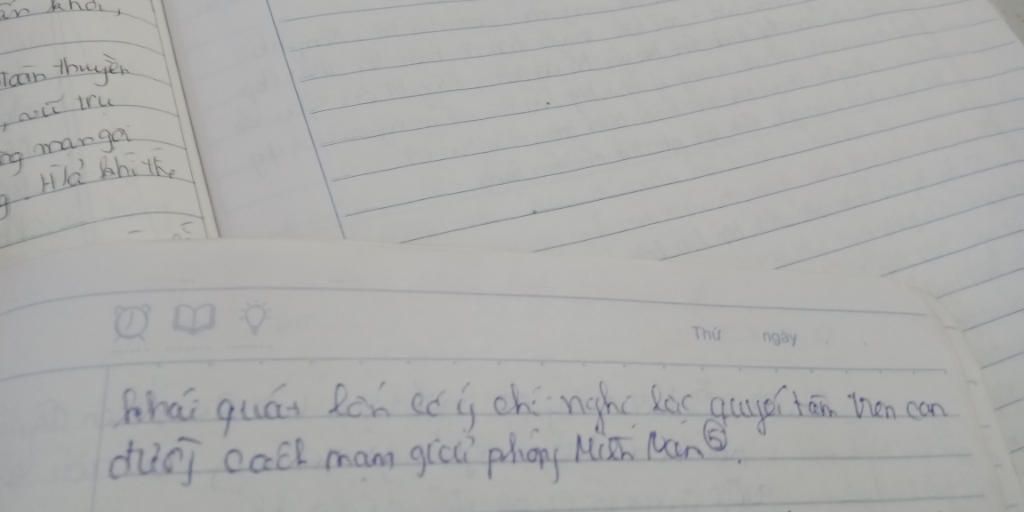 ăn khơi,
toàn thuyền
, vũ trụ
ng mangơi
g. Hả khí thế
Thứ ngày
khái quát lớn có ý chí nghị lực quyết tâm trên con
đường cách mạng giải phóng Miền Nam ⑤.